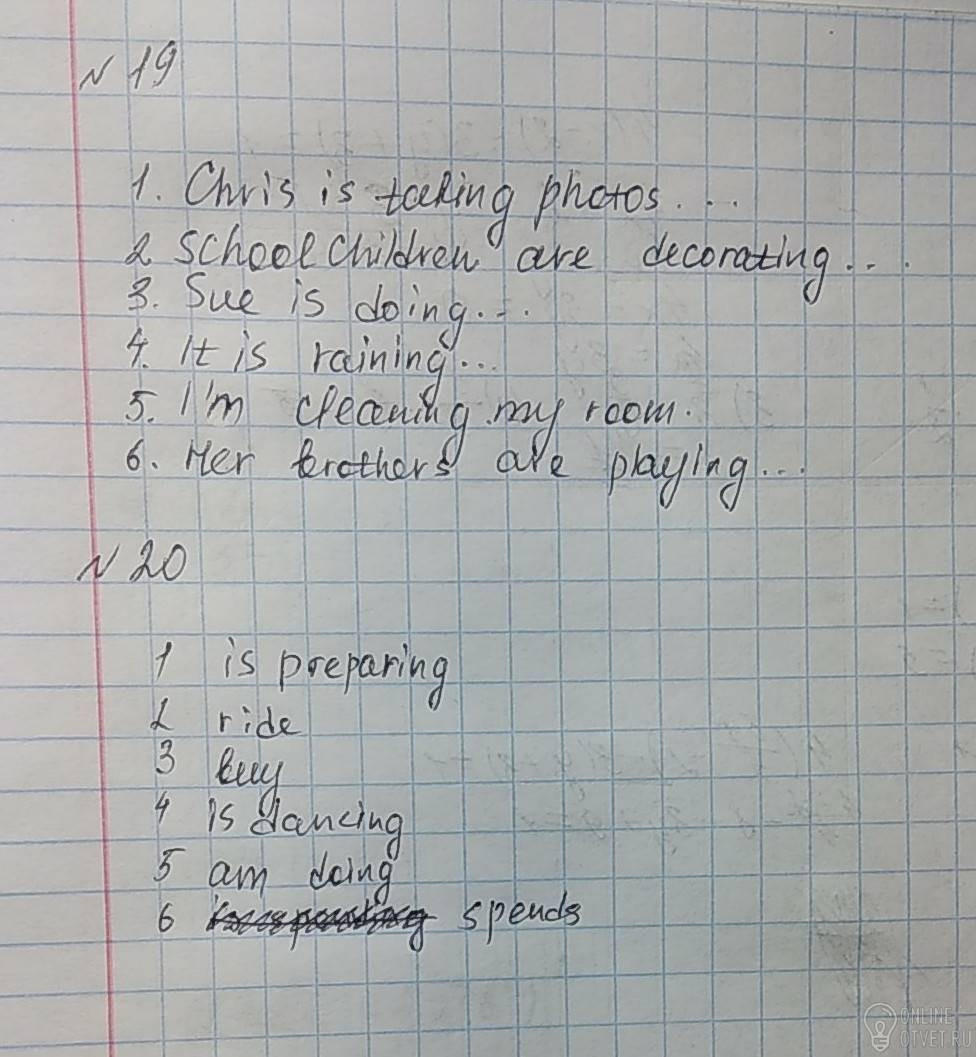 N 19
1. Chris is taking photos. ...
2 Schoolchildren are decorating...
3. Sue is doing...
4. It is raining...
5. I'm cleaning my room.
6. Her brothers are playing...
N 20
1 is preparing
2 ride
3 buy
4 is dancing
5 am doing
6 spends
ONLINE
OTVET.RU